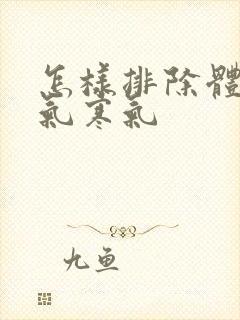 怎樣排除體
氣寒氣
九鱼